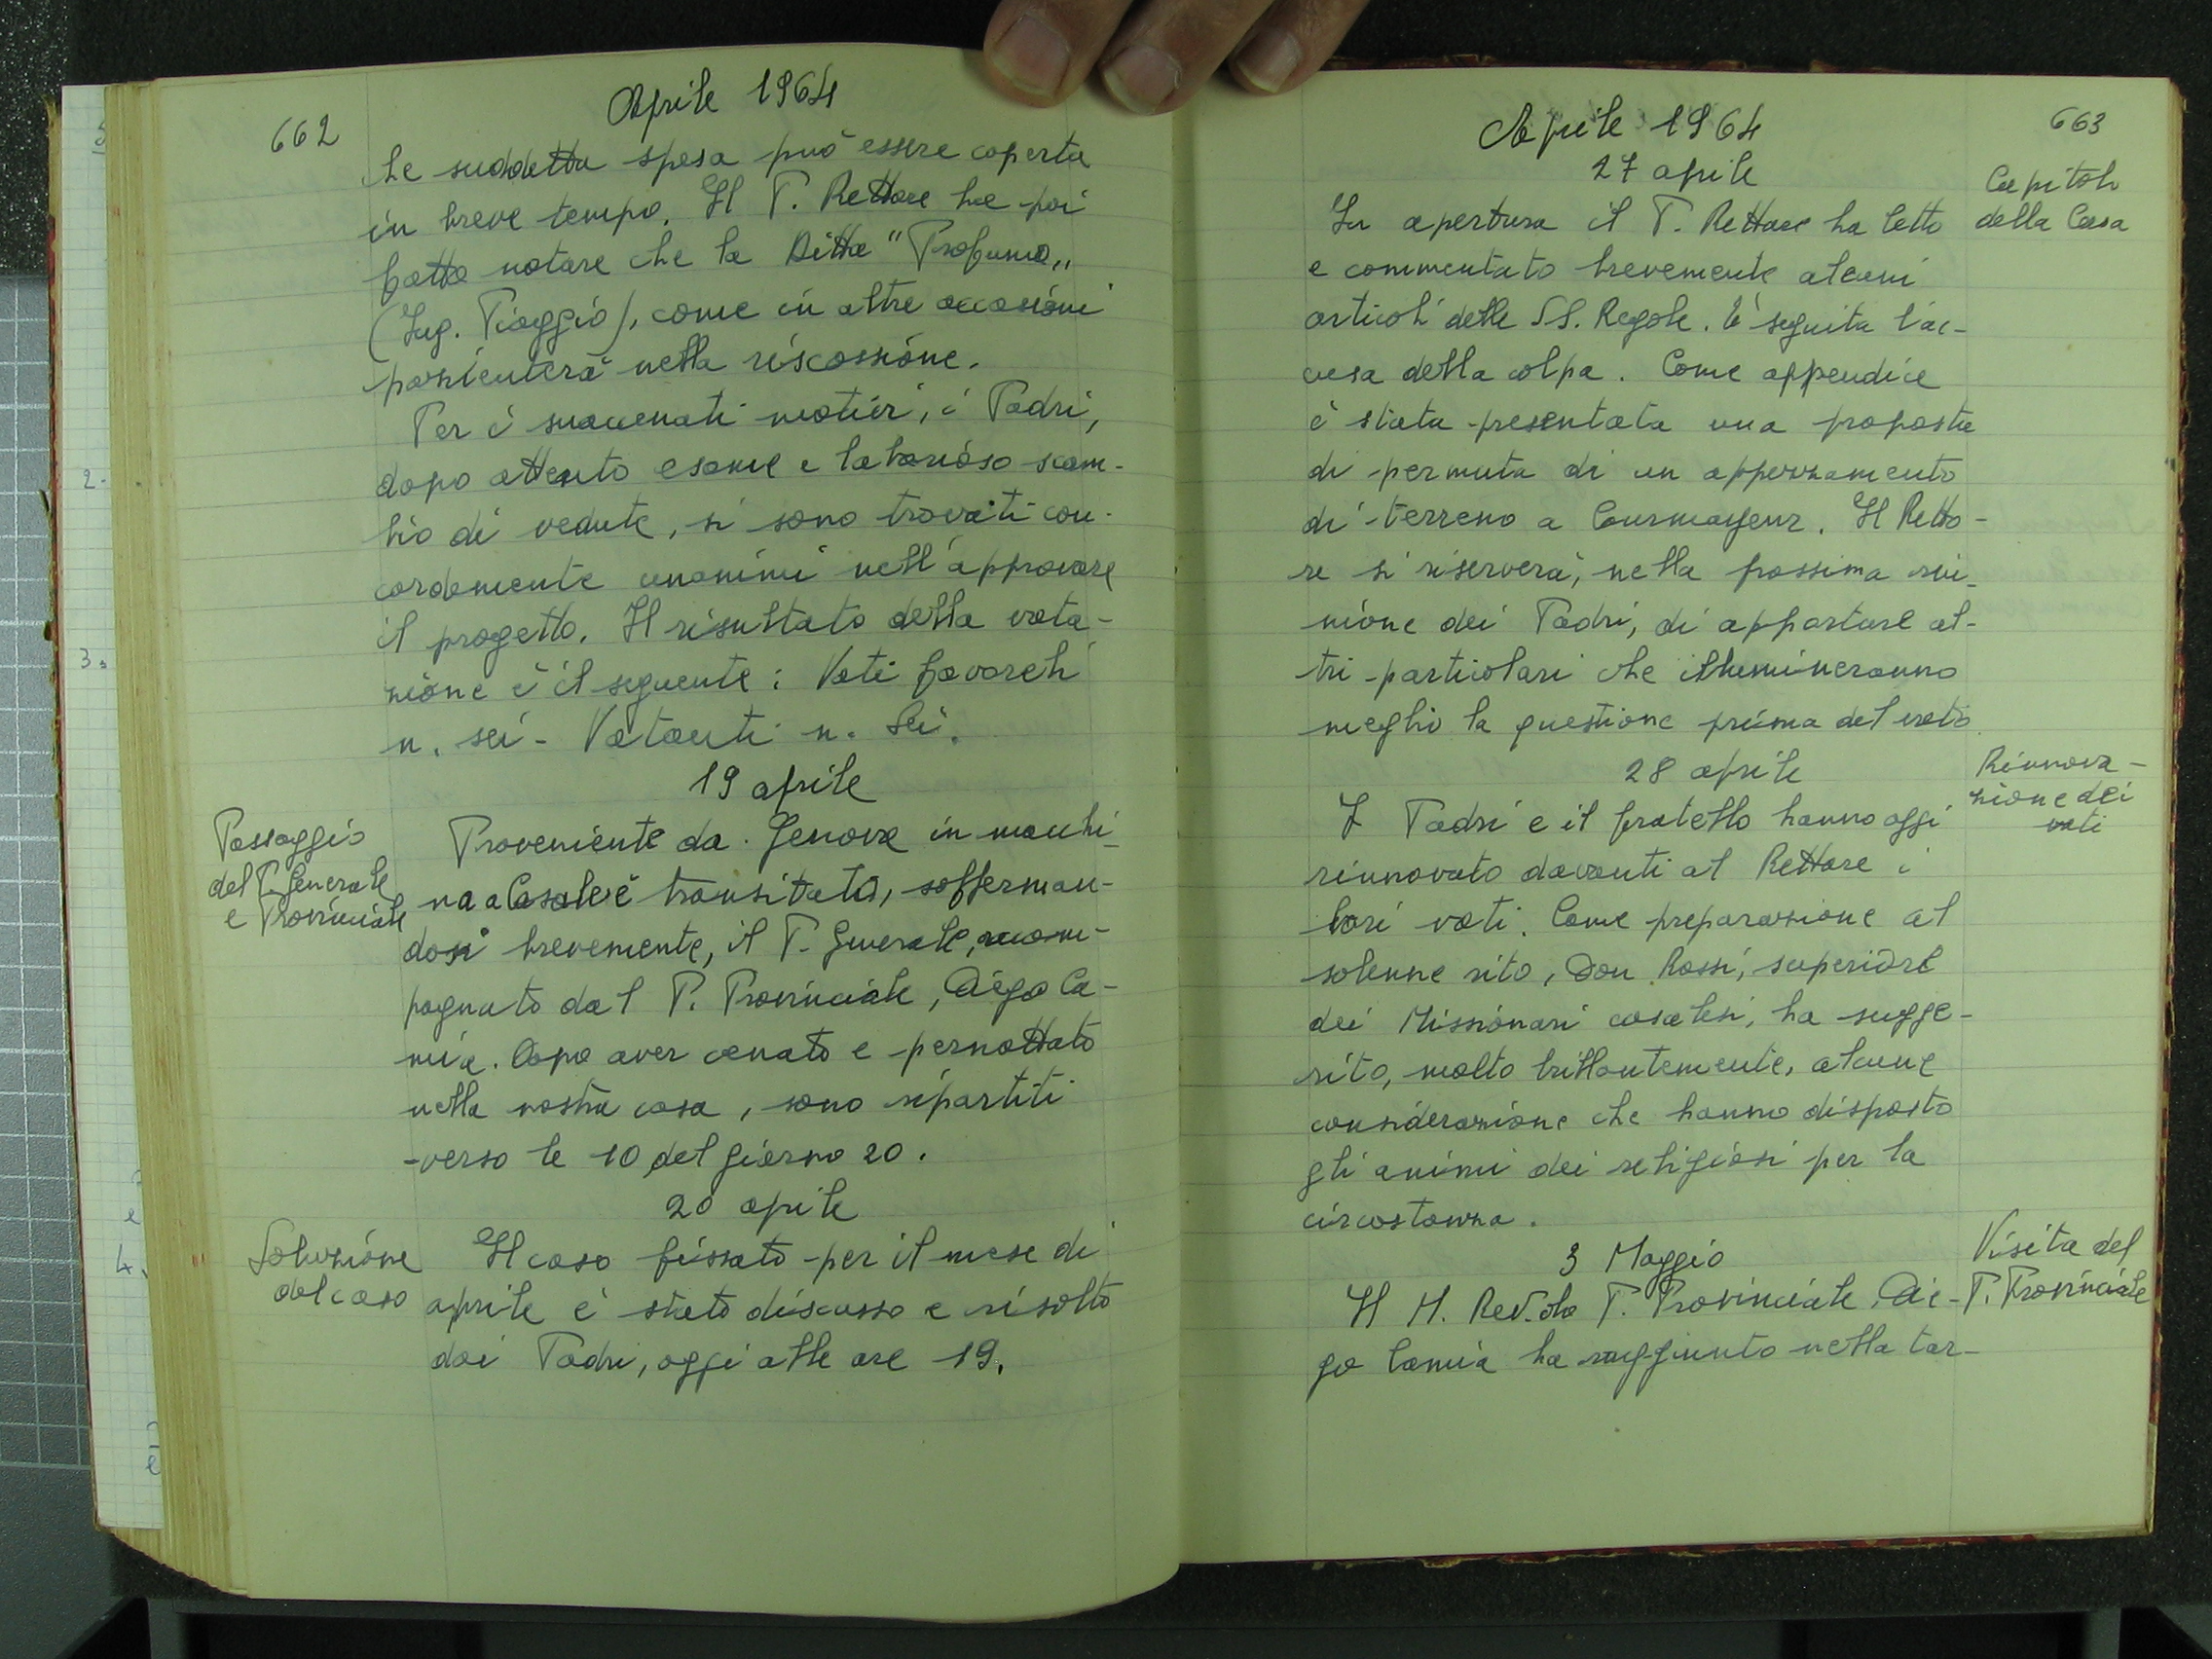 662
Aprile 1964
la suddetta spesa può essere coperta
in breve tempo. Il P. Rettore ha poi
fatto notare che la Ditta "Profumo"
(Ing. Piaggio), come in altre occasioni
pazienterà nella riscossione.
Per i suaccenati motivi, i Padri,
dopo attento esame e laborioso scam-
bio di vedute, si sono trovati con-
cordemente unanimi nell'approvare
il progetto. Il risultato della vota-
zione è il seguente: Voti favorevoli
n. sei - Votanti n. sei.
19 aprile
Passaggio
del P. Generale
e Provinciale
Proveniente da Genova in macchi-
na a Casale è transitato, sofferman-
dosi brevemente, il P. Generale, accom-
pagnato dal P. Provinciale, Diego Ca-
mia. Dopo aver cenato e pernottato
nella nostra casa, sono ripartiti
verso le 10 del giorno 20.
20 aprile
Soluzione
del caso
Il caso fissato per il mese di
aprile è stato discusso e risolto
dai Padri, oggi alle ore 19.
663
Aprile 1964
27 aprile
Capitolo
della Casa
In apertura il P. Rettore ha letto
e commentato brevemente alcuni
articoli delle SS. Regole. È seguita l'ac-
cusa della colpa. Come appendice
è stata presentata una proposta
di permuta di un appezzamento
di terreno a Courmayeur. Il Retto-
re si riserverà, nella prossima riu-
nione dei Padri, di apportare al-
tri particolari che illumineranno
meglio la questione prima del voto.
28 aprile
Rinnova-
zione dei
voti
I Padri e il fratello hanno oggi
rinnovato davanti al Rettore i
loro voti. Come preparazione al
solenne rito, Don Rossi, superiore
dei Missionari casalesi, ha sugge-
rito, molto brillantemente, alcune
considerazione che hanno disposto
gli animi dei religiosi per la
circostanza.
3 Maggio
Visita del
P. Provinciale
Il M. Rev.do P. Provinciale, Die-
go Camia ha raggiunto nella tar-